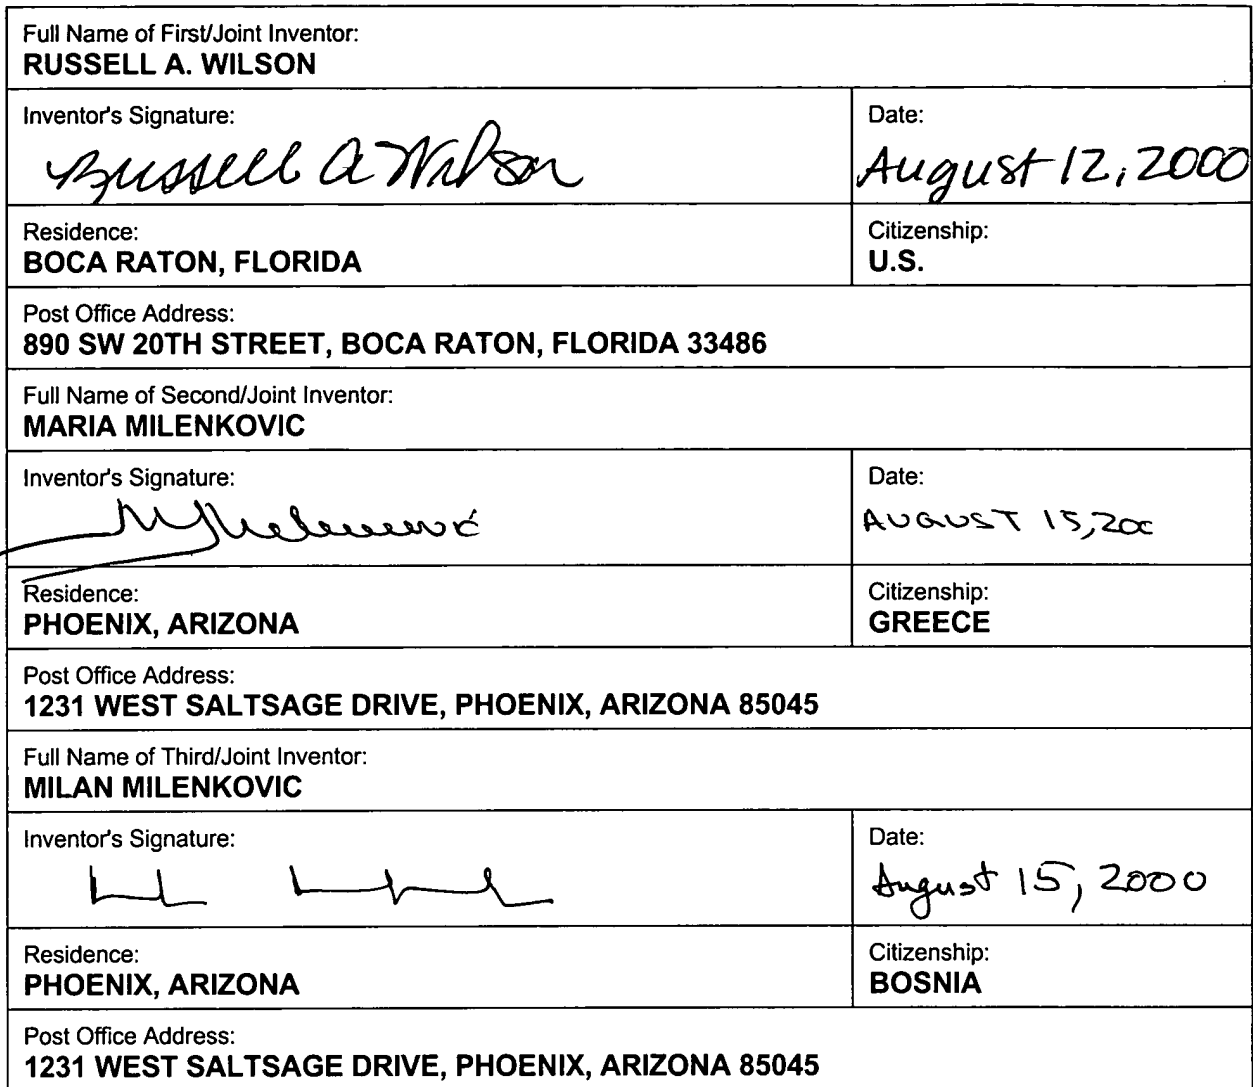 Full Name of First/Joint Inventor:
RUSSELL A. WILSON
Inventor's Signature:
Date:
Russell A Wilson
August 12, 2000
Residence:
Citizenship:
BOCA RATON, FLORIDA
U.S.
Post Office Address:
890 SW 20TH STREET, BOCA RATON, FLORIDA 33486
Full Name of Second/Joint Inventor:
MARIA MILENKOVIC
Inventor's Signature:
Date:
AUGUST 15, 200
Residence:
Citizenship:
PHOENIX, ARIZONA
GREECE
Post Office Address:
1231 WEST SALTSAGE DRIVE, PHOENIX, ARIZONA 85045
Full Name of Third/Joint Inventor:
MILAN MILENKOVIC
Inventor's Signature:
Date:
August 15, 2000
Residence:
Citizenship:
PHOENIX, ARIZONA
BOSNIA
Post Office Address:
1231 WEST SALTSAGE DRIVE, PHOENIX, ARIZONA 85045